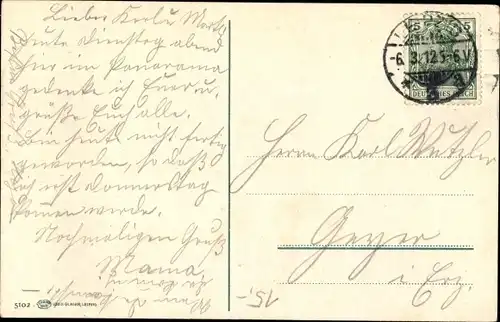 Lieber Karl u. Mart.
Heute Dienstag abend
hier im Panorama
gedenke ich Euer u.
grüße Euch alle.
Bin heute nicht fertig
geworden, so daß
ich erst Donnerstag
komen werde.
Nochmaligen Gruß
Mama
5102
5
DEUTSCHES REICH
6.3.12 5-6 V
Herrn Karl Wutzler
Geyer
i. Erz.
15,-